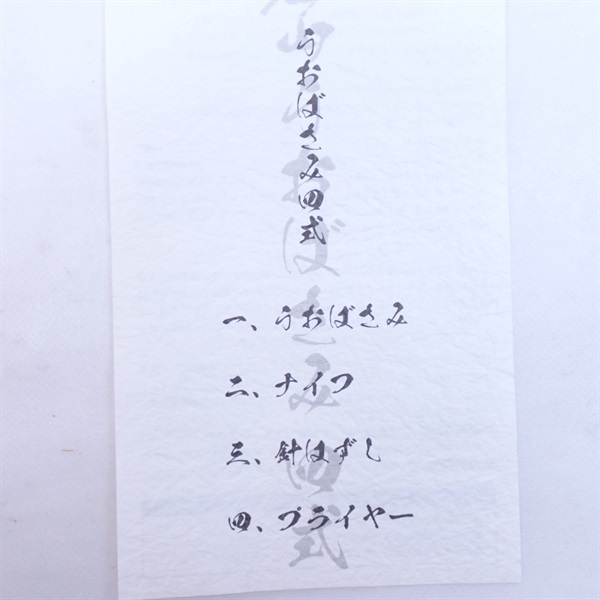 うおばさみ四式
一、うおばさみ
二、ナイフ
三、針はずし
四、プライヤー
うおばさみ四式